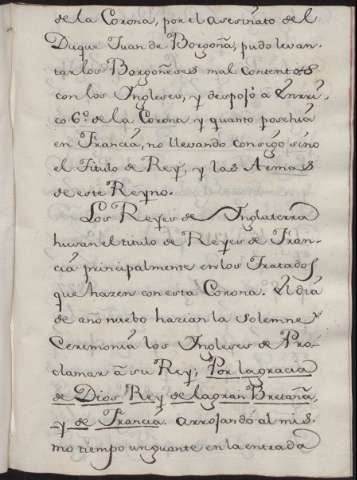 de la Corona, por el asesinato del
Duque Juan de Borgoña, pudo levan-
tar los Borgoñeses mal contentos
con los Ingleses, y despojó à Enrri-
co 6º. de la Corona y quanto posehia
en Francia, no llevando consigo sino
el Titulo de Rey, y las Armas
de este Reyno.
Los Reyes de Inglaterra
husan el titulo de Reyes de Fran-
cia principalmente en los Tratados
que hazen con esta Corona. El dia
de año nuebo hazian la solemne
Ceremonia los Ingleses de Pro-
clamar a su Rey; Por la gracia
de Dios Rey de la gran Bretaña,
y de Francia. arrojando al mis-
mo tiempo un guante en la entrada